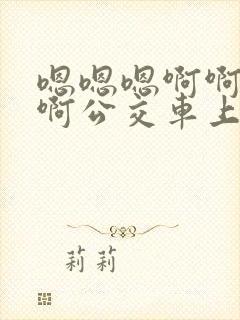 嗯嗯嗯啊啊
啊公交車上
莉莉